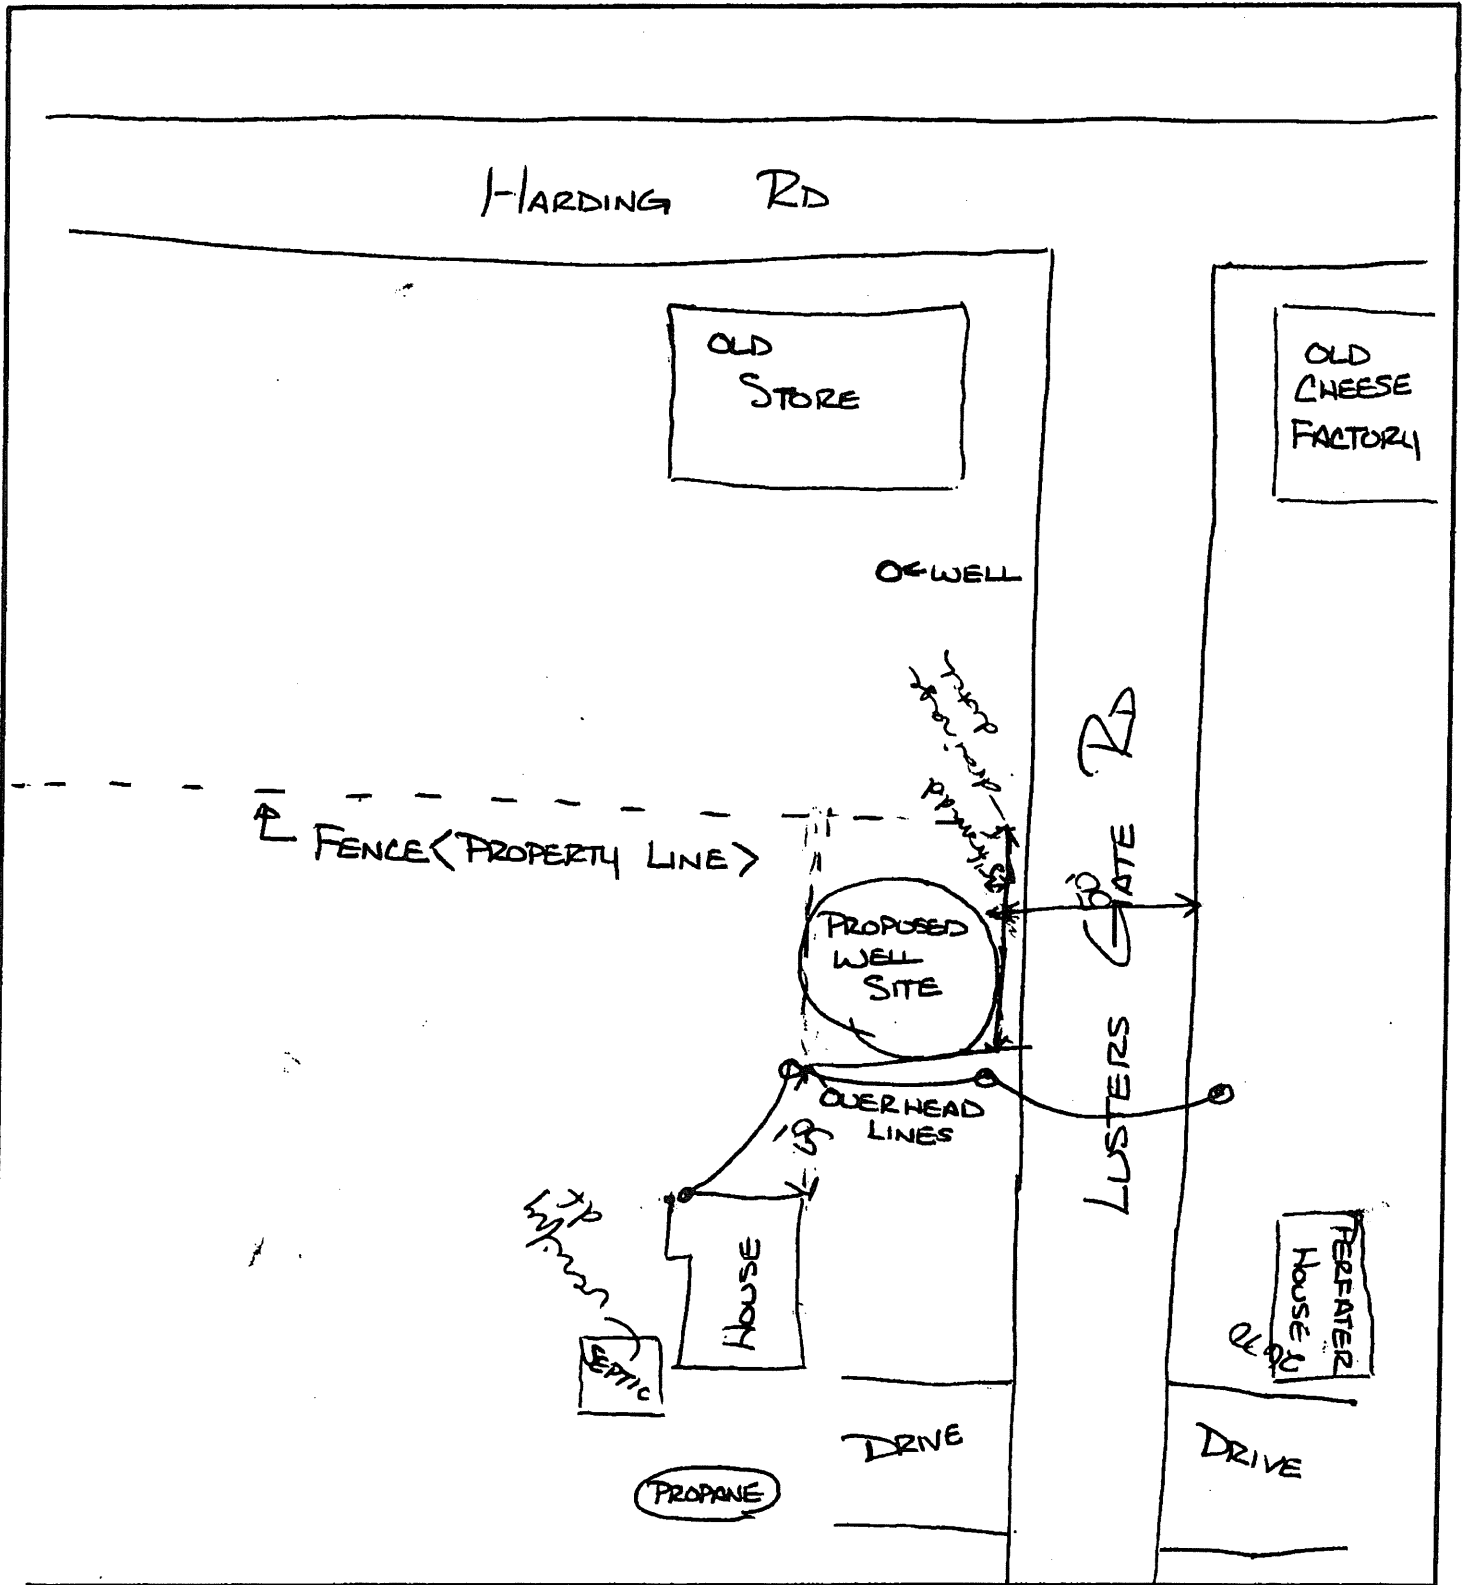 HARDING RD
OLD
STORE
OLD
CHEESE
FACTORY
WELL
FENCE <PROPERTY LINE>
PROPOSED
WELL
SITE
50'
LUSTERS GATE RD
OVERHEAD
LINES
HOUSE
SEPTIC
PERFATER
HOUSE
DRIVE
DRIVE
PROPANE